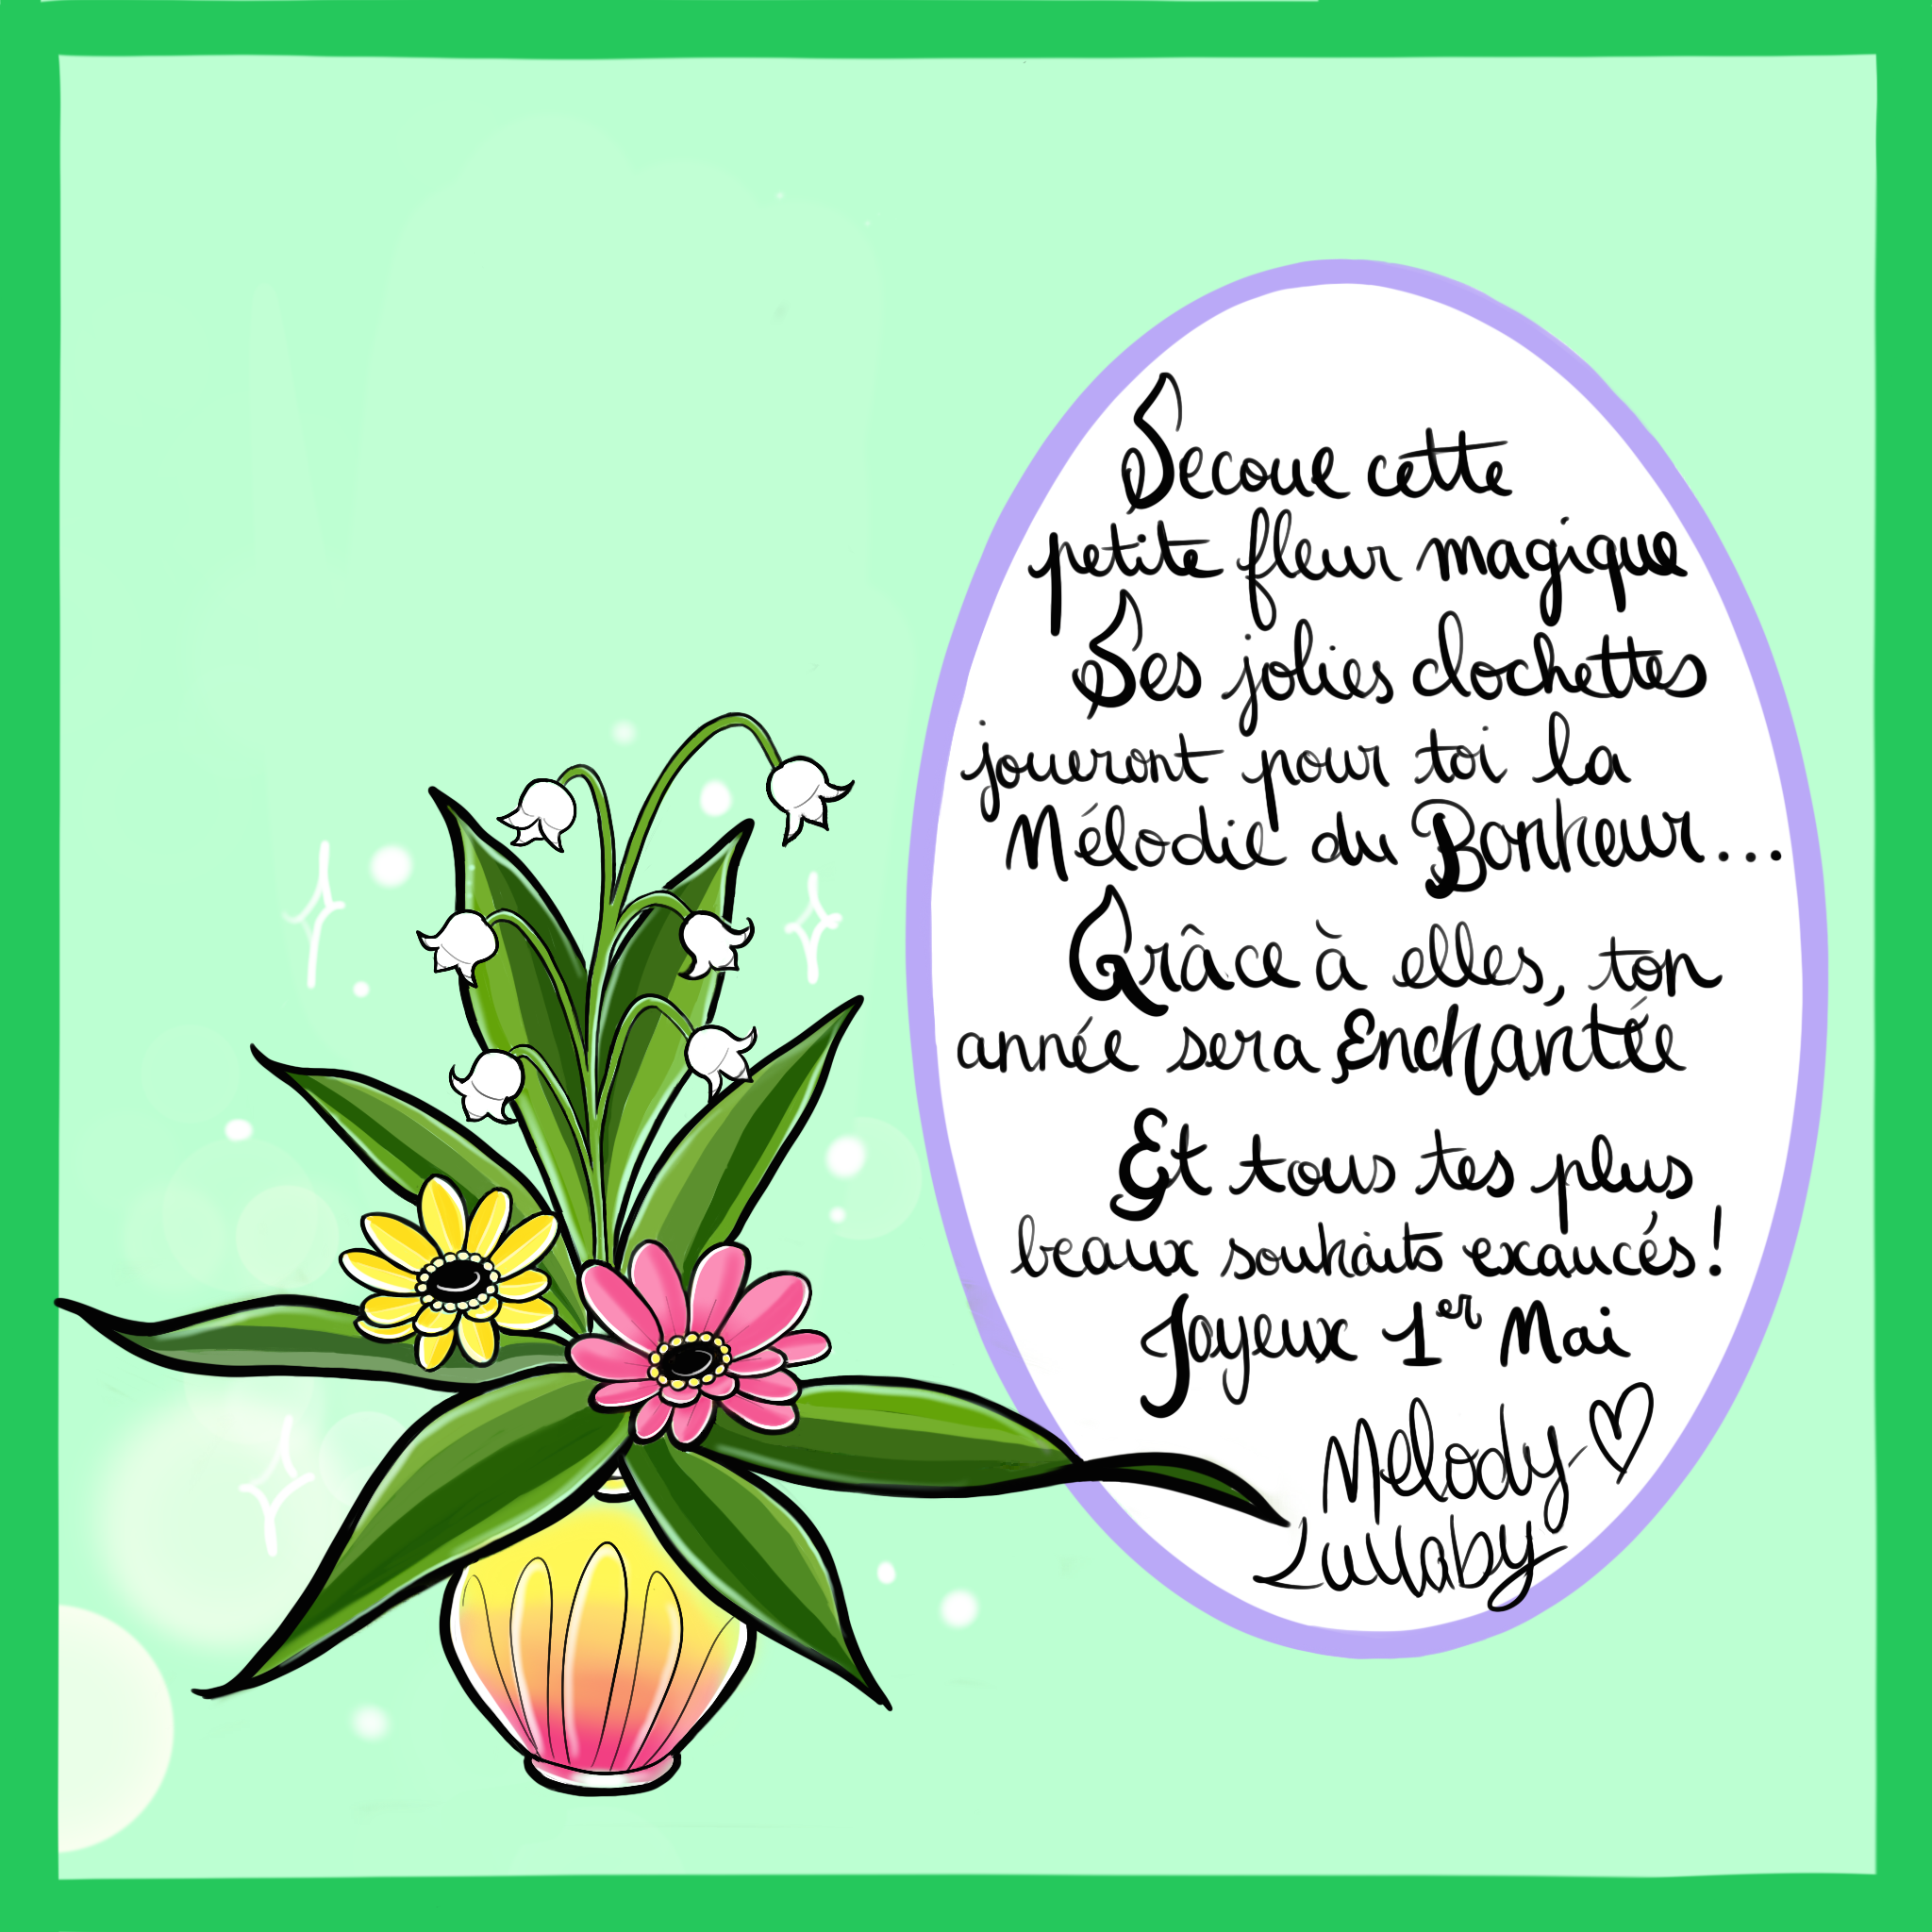 Secoue cette
petite fleur magique
Ses jolies clochettes
joueront pour toi la
Mélodie du Bonheur...
Grâce à elles, ton
année sera Enchantée
Et tous tes plus
beaux souhaits exaucés!
Joyeux 1er Mai
Melody
Lullaby